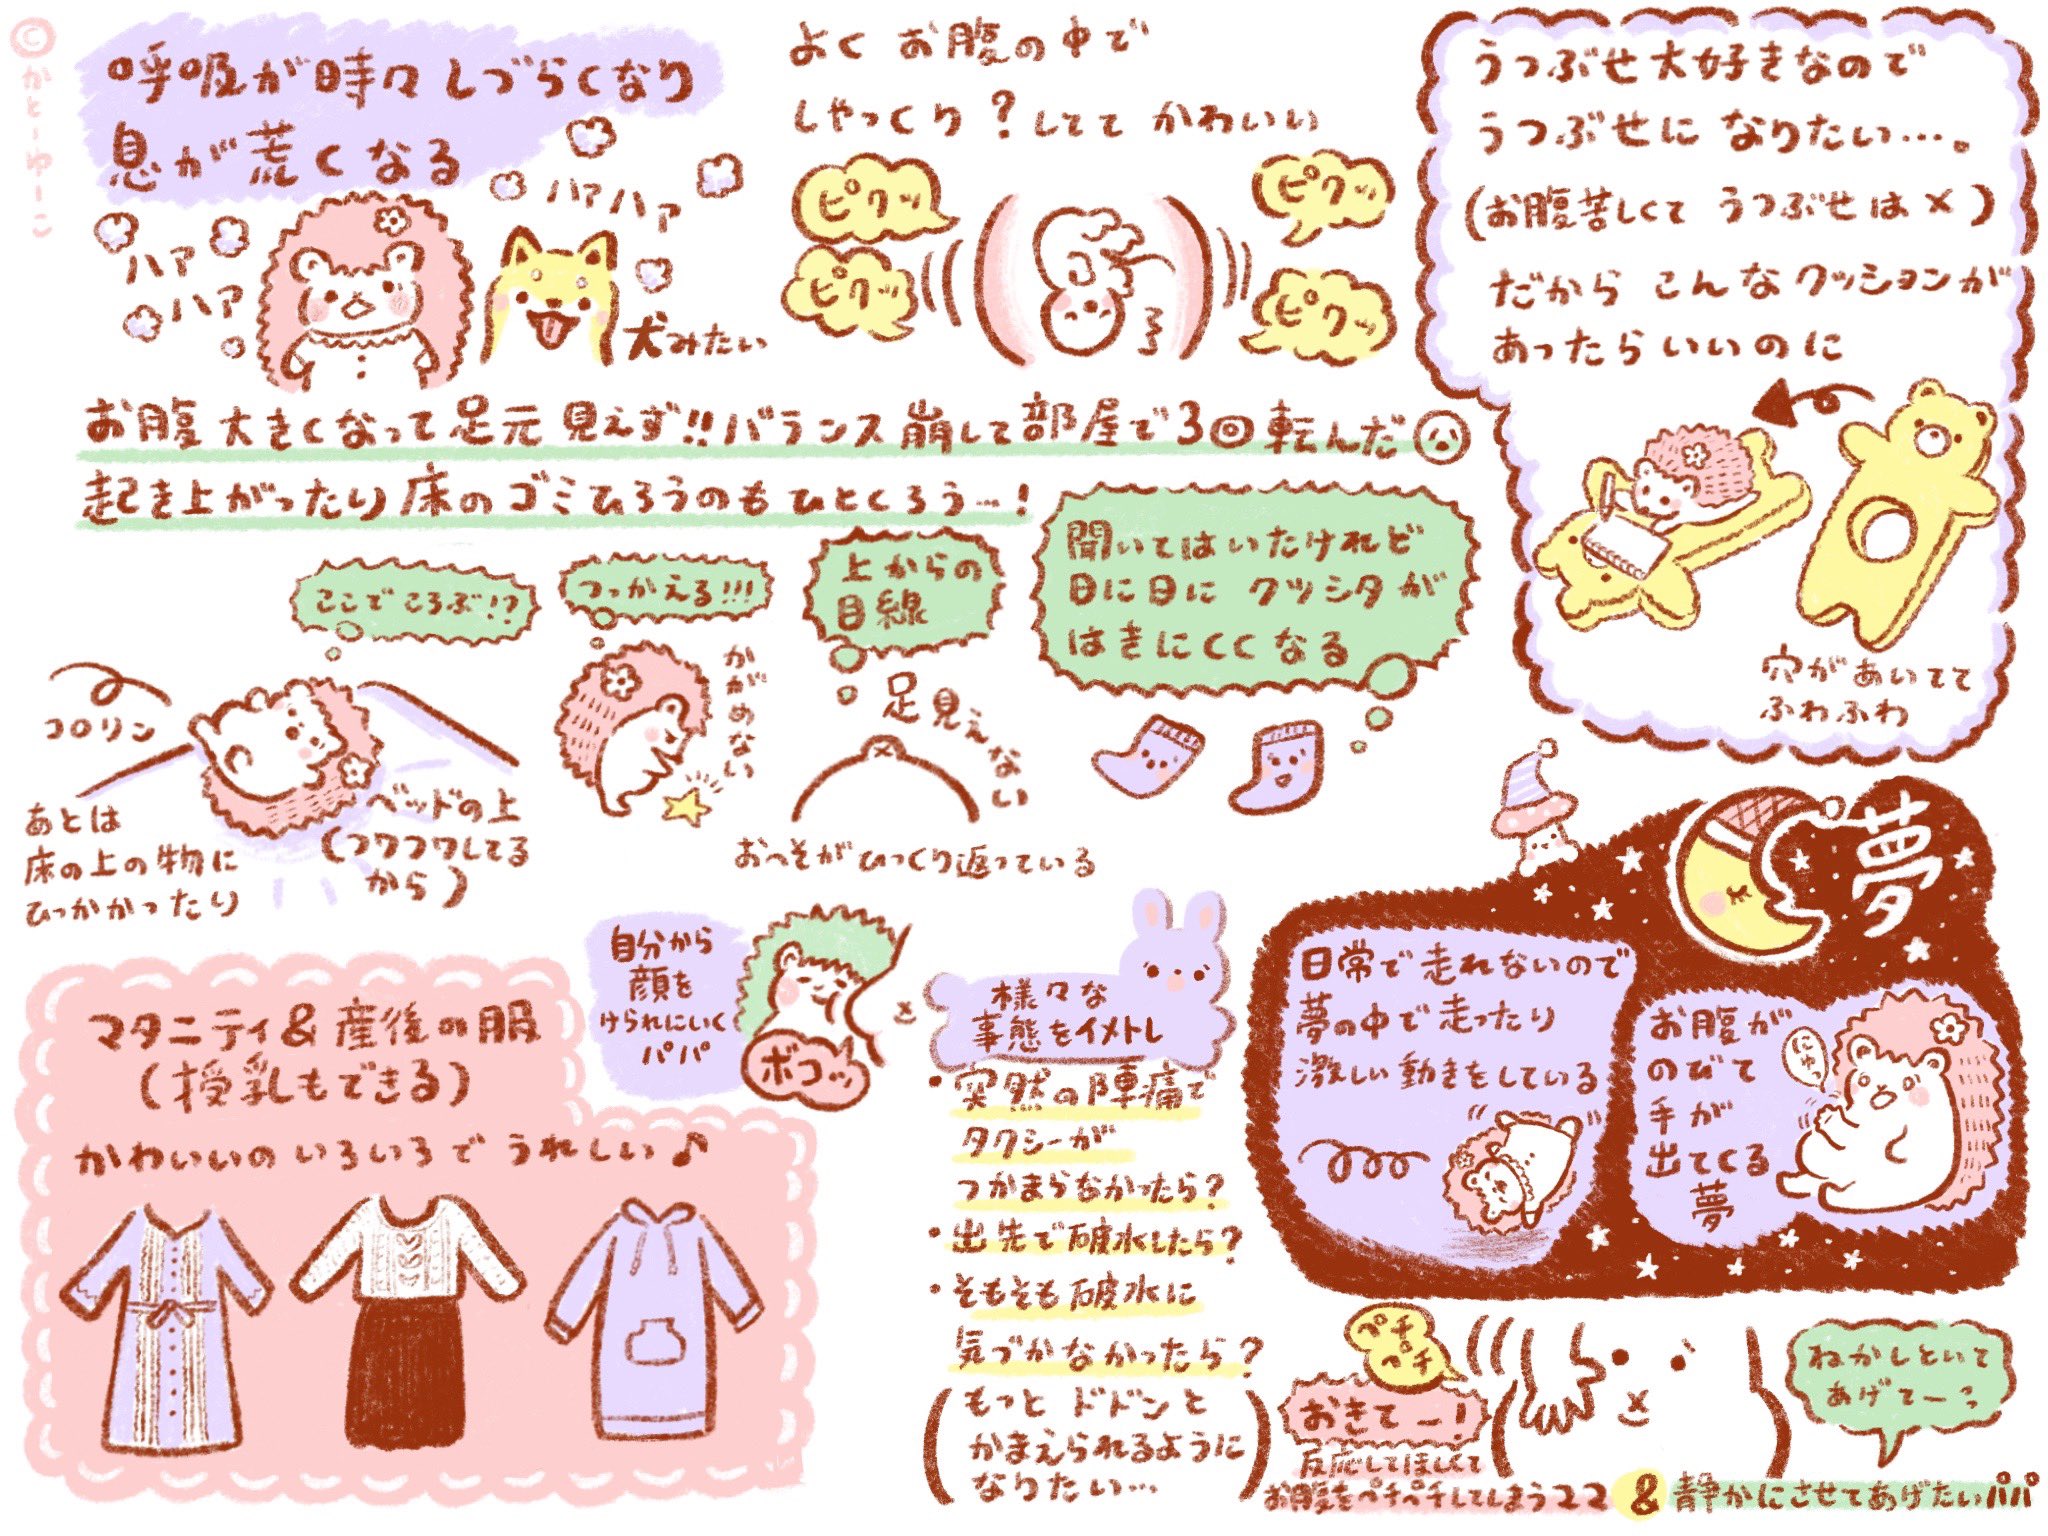 ©かとーゆーこ
呼吸が時々しづらくなり
息が荒くなる
ハァハァ
ハァ
ハァ
犬みたい
よくお腹の中で
しゃっくり?してて かわいい
ピクッ
ピクッ
ピクッ
ピクッ
うつぶせ大好きなので
うつぶせに なりたい…。
(お腹苦しくて うつぶせは×)
だから こんなクッションが
あったらいいのに
穴があいてて
ふわふわ
お腹大きくなって足元見えず!!バランス崩して部屋で3回転んだ
起き上がったり床のゴミひろうのもひとくろう…!
ここでころぶ!?
コロリン
あとは
床の上の物に
ひっかかったり
ベッドの上
(フワフワしてる
から)
つっかえる!!!
かがめない
上からの
目線
足見えない
おへそがひっくり返っている
聞いてはいたけれど
日に日に クツシタが
はきにくくなる
マタニティ&産後の服
(授乳もできる)
かわいいのいろいろで うれしい♪
自分から
顔を
けられにいく
パパ
ボコッ
様々な
事態をイメトレ
・突然の陣痛で
タクシーが
つかまらなかったら?
・出先で破水したら?
・そもそも破水に
気づかなかったら?
(もっと ドドンと
かまえられるように
なりたい…)
夢
日常で走れないので
夢の中で走ったり
激しい動きをしている
お腹が
のびて
手が
出てくる
夢
にゅっ
ペチ
ペチ
おきてー!
反応してほしくて
お腹をペチペチしてしまうママ & 静かにさせてあげたいパパ
ねかしといて
あげてーっ